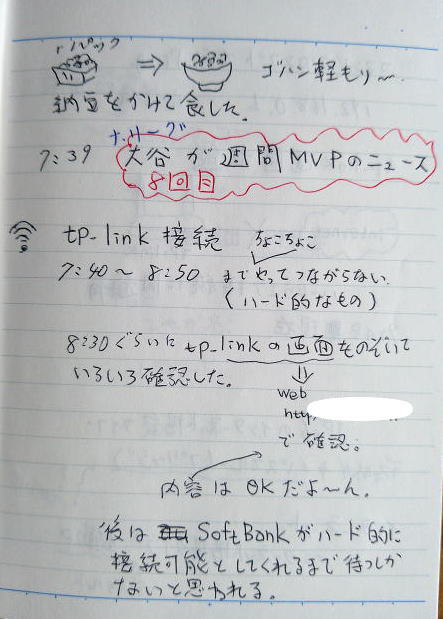 1パック
⇒ ゴハン軽もり〜
納豆をかけて食した。
ナ.リーグ
7:39 大谷が週間MVPのニュース
8回目
tp-link 接続 ちょこちょこ
7:40〜8:50 までやってつながらない
(ハード的なもの)
8:30ぐらいに tp-linkの画面をのぞいて
いろいろ確認した。
⇓
web
http
で確認。
内容はOKだよ〜ん。
後は SoftBankがハード的に
接続可能としてくれるまで待つしか
ないと思われる。